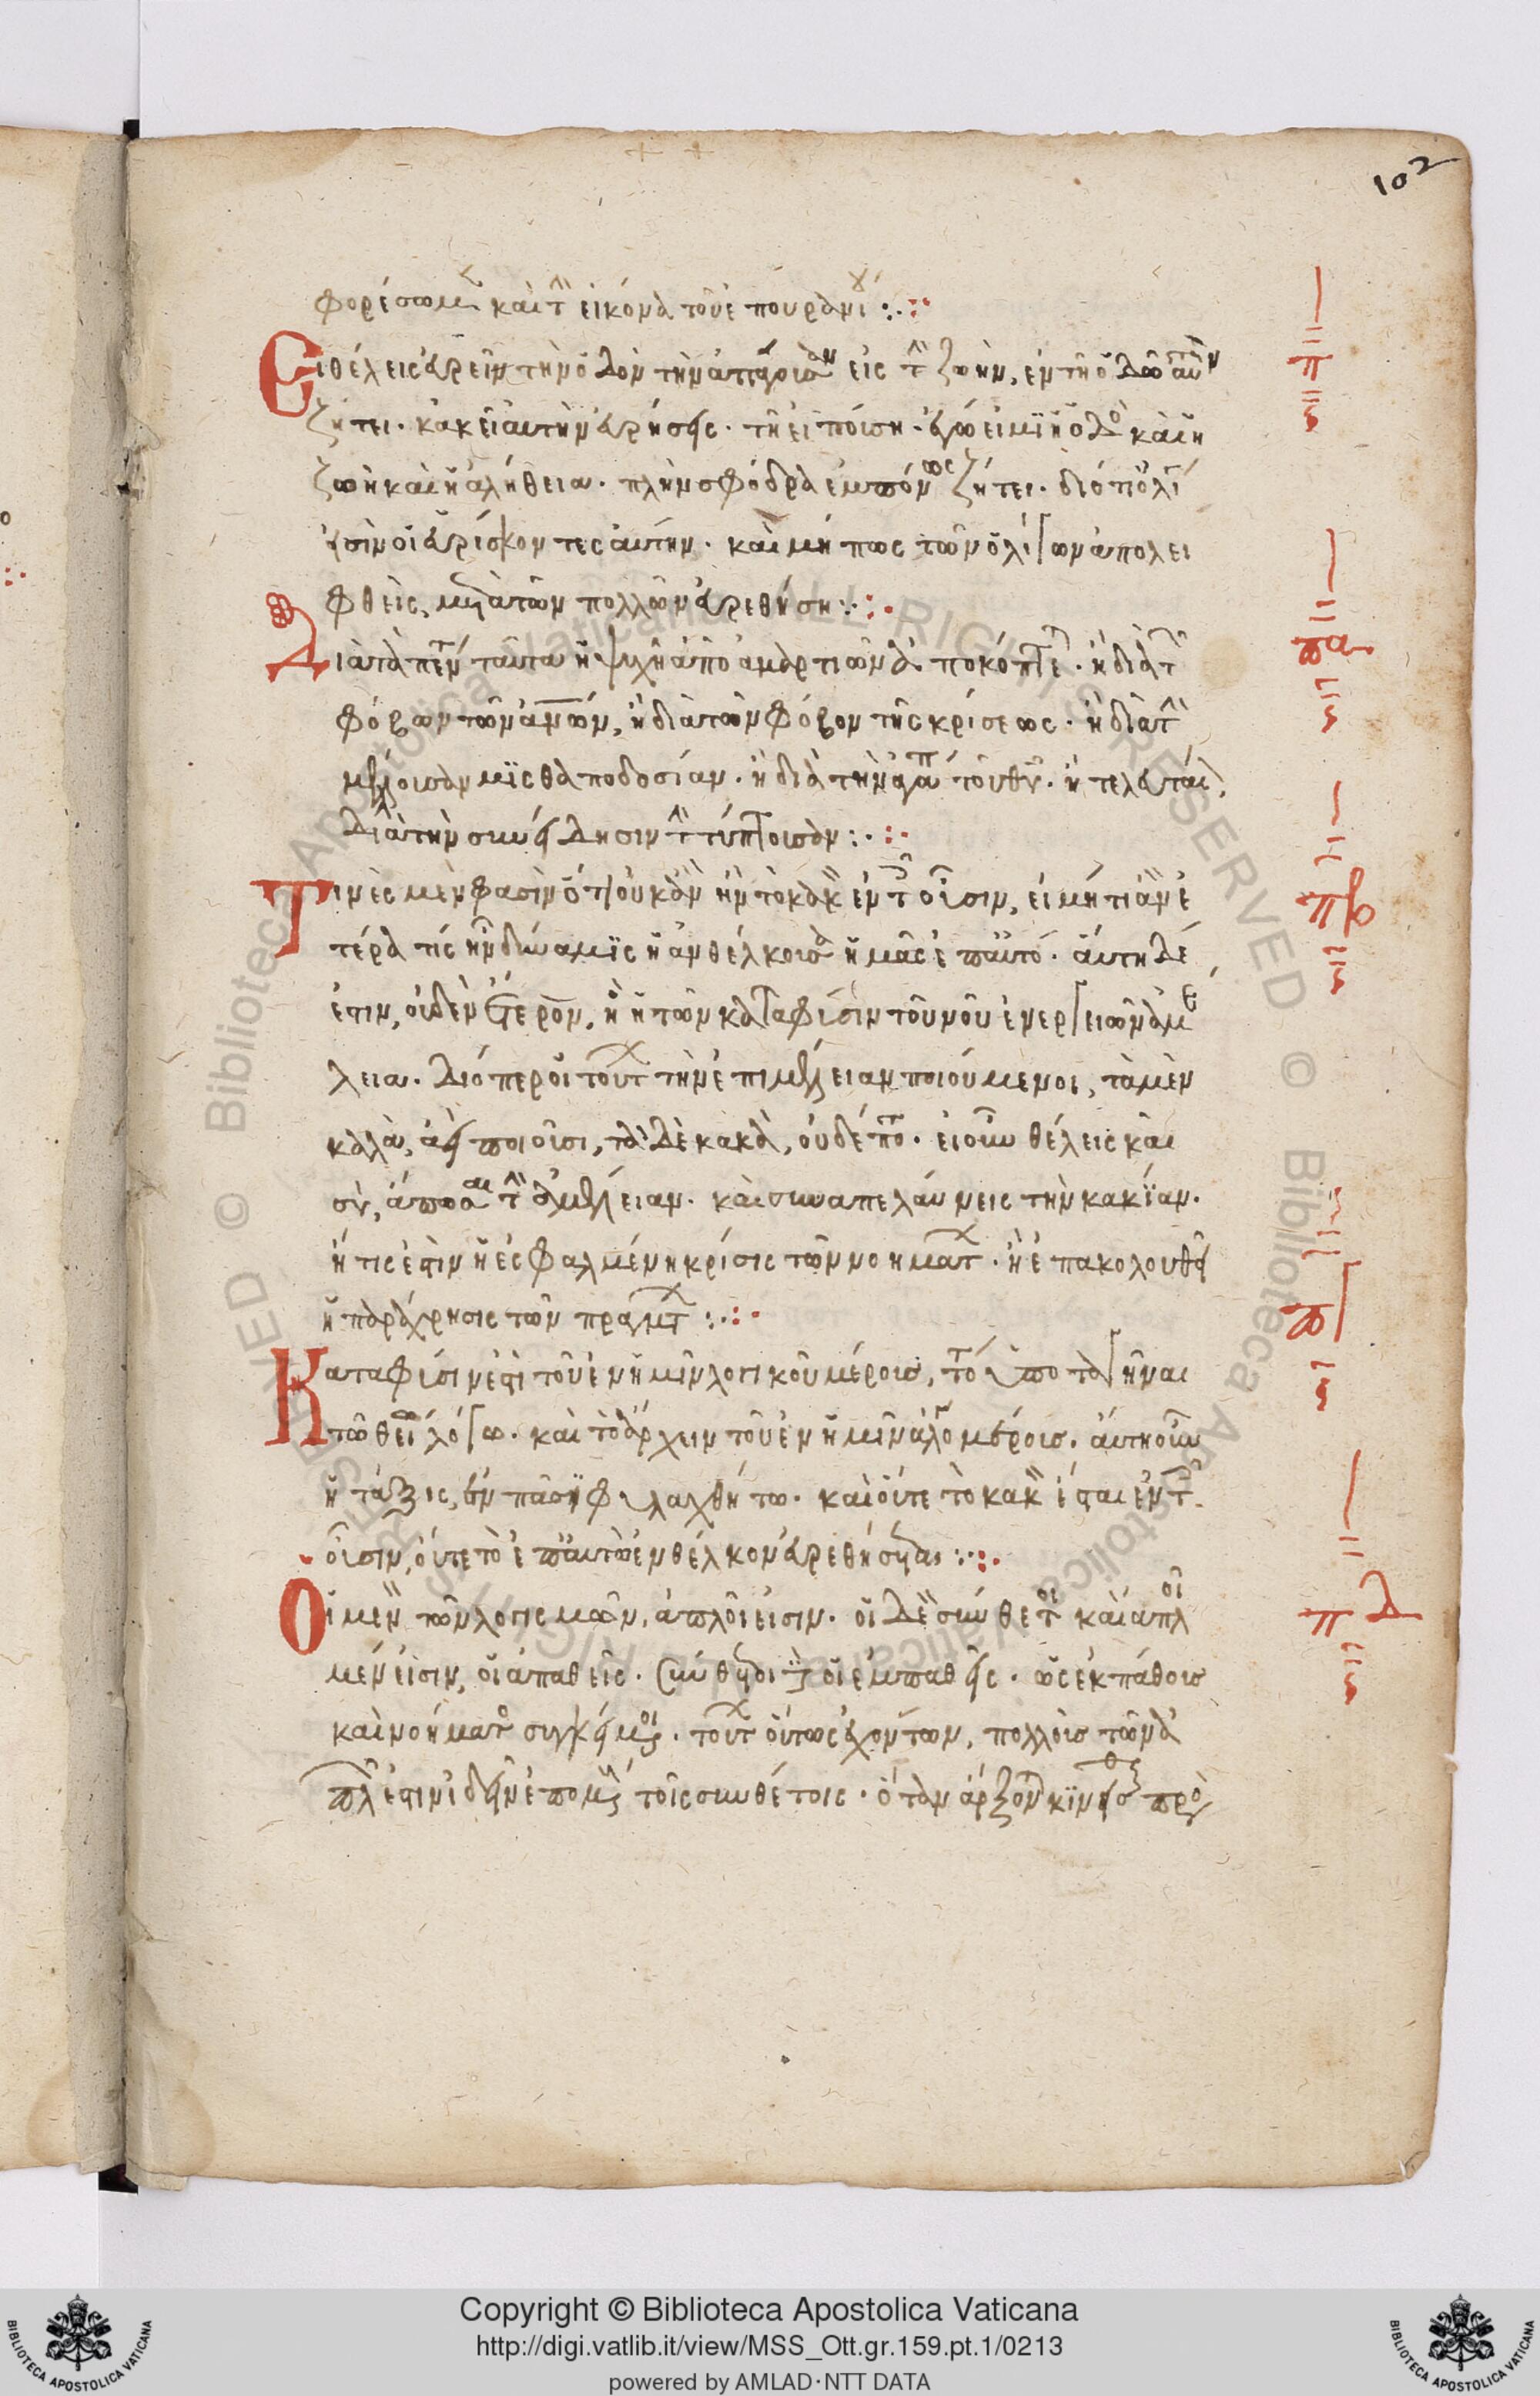 102
φορέσωμεν καὶ τὴν εἰκόνα τοῦ ἐπουρανίου
π
Εἰ θέλεις εὑρεῖν τὴν ὁδὸν τὴν ἀπάγουσαν εἰς τὴν ζωὴν, ἐν τῇ ὁδῷ αὐτὴν
ζήτει. κἀκεῖ αὐτὴν εὑρήσεις. τῇ εἰπούσῃ. ἐγώ εἰμι ἡ ὁδὸς καὶ ἡ
ζωὴ καὶ ἡ ἀλήθεια. πλὴν σφόδρα ἐμπόνως ζήτει. διότι ὀλίγοι
εἰσὶν οἱ εὑρίσκοντες αὐτήν. καὶ μή πως τῶν ὀλίγων ἀπολει
φθεὶς, μετὰ τῶν πολλῶν εὑρεθήσῃ
πα
Διὰ τὰ πέντε ταῦτα ἡ ψυχὴ ἀπὸ ἁμαρτιῶν ἀποκόπτεται. ἢ διὰ τὸν
φόβον τῶν ἀνθρώπων, ἢ διὰ τὸν φόβον τῆς κρίσεως. ἢ διὰ τὴν
μέλλουσαν μισθαποδοσίαν. ἢ διὰ τὴν ἀγάπην τοῦ θεοῦ. ἢ τελευταῖον
διὰ τὴν συνείδησιν τὴν τύπτουσαν
πβ
Τινὲς μὲν φασὶν ὅτι οὐκ ἂν ἦν τὸ κακὸν ἐν τοῖς οὖσιν, εἰ μή τι ἂν ἑ
τέρα τίς ἦν δύναμις ἡ ἀνθέλκουσα ἡμᾶς ἐπ' αὐτό. αὕτη δέ
ἐστιν, οὐδὲν ἕτερον, ἢ ἡ τῶν κατὰ φύσιν τοῦ νοῦ ἐνεργειῶν ἀμέ
λεια. διόπερ οἱ τούτων τὴν ἐπιμέλειαν ποιούμενοι, τὰ μὲν
καλὰ, ἀεὶ ποιοῦσι, τὰ δὲ κακὰ, οὐδέποτε. εἰ οὖν θέλεις καὶ
σὺ, ἄπωσαι τὴν ἀμέλειαν. καὶ συναπελαύνεις τὴν κακίαν.
ἥτις ἐστὶν ἡ ἐσφαλμένη κρίσις τῶν νοημάτων. ᾗ ἐπακολουθεῖ
ἡ παράχρησις τῶν πραγμάτων
πγ
Κατὰ φύσιν ἐστὶ τοῦ ἐν ἡμῖν λογικοῦ μέρους, τό τε ὑποταγῆναι
τῷ θείῳ λόγῳ. καὶ τὸ ἄρχειν τοῦ ἐν ἡμῖν ἀλόγου μέρους. αὕτη οὖν
ἡ τάξις, ἐν πᾶσι φυλαχθήτω. καὶ οὔτε τὸ κακὸν ἔσται ἐν τοῖς
οὖσιν, οὔτε τὸ ἐπ' αὐτὸ ἐνθέλκον εὑρεθήσεται
πδ
Οἱ μὲν τῶν λογισμῶν, ἁπλοῖ εἰσιν. οἱ δὲ σύνθετοι καὶ ἁπλοῖ
μέν εἰσιν, οἱ ἀπαθεῖς. σύνθετοι δὲ οἱ ἐμπαθεῖς. ὡς ἐκ πάθους
καὶ νοήματος συγκείμενοι. τούτων οὕτως ἐχόντων, πολλοὺς τῶν ἁ
πλῶν ἐστιν ἰδεῖν ἑπομένους τοῖς συνθέτοις. ὅταν ἄρξονται κινεῖσθαι πρὸς
Copyright © Biblioteca Apostolica Vaticana
http://digi.vatlib.it/view/MSS_Ott.gr.159.pt.1/0213
powered by AMLAD·NTT DATA